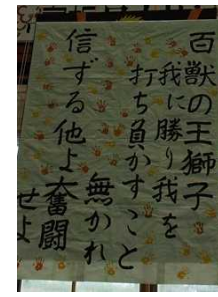 百獣の王獅子
我に勝り我を
打ち負かすこと
無かれ
信ずる他よ奮闘
せよ